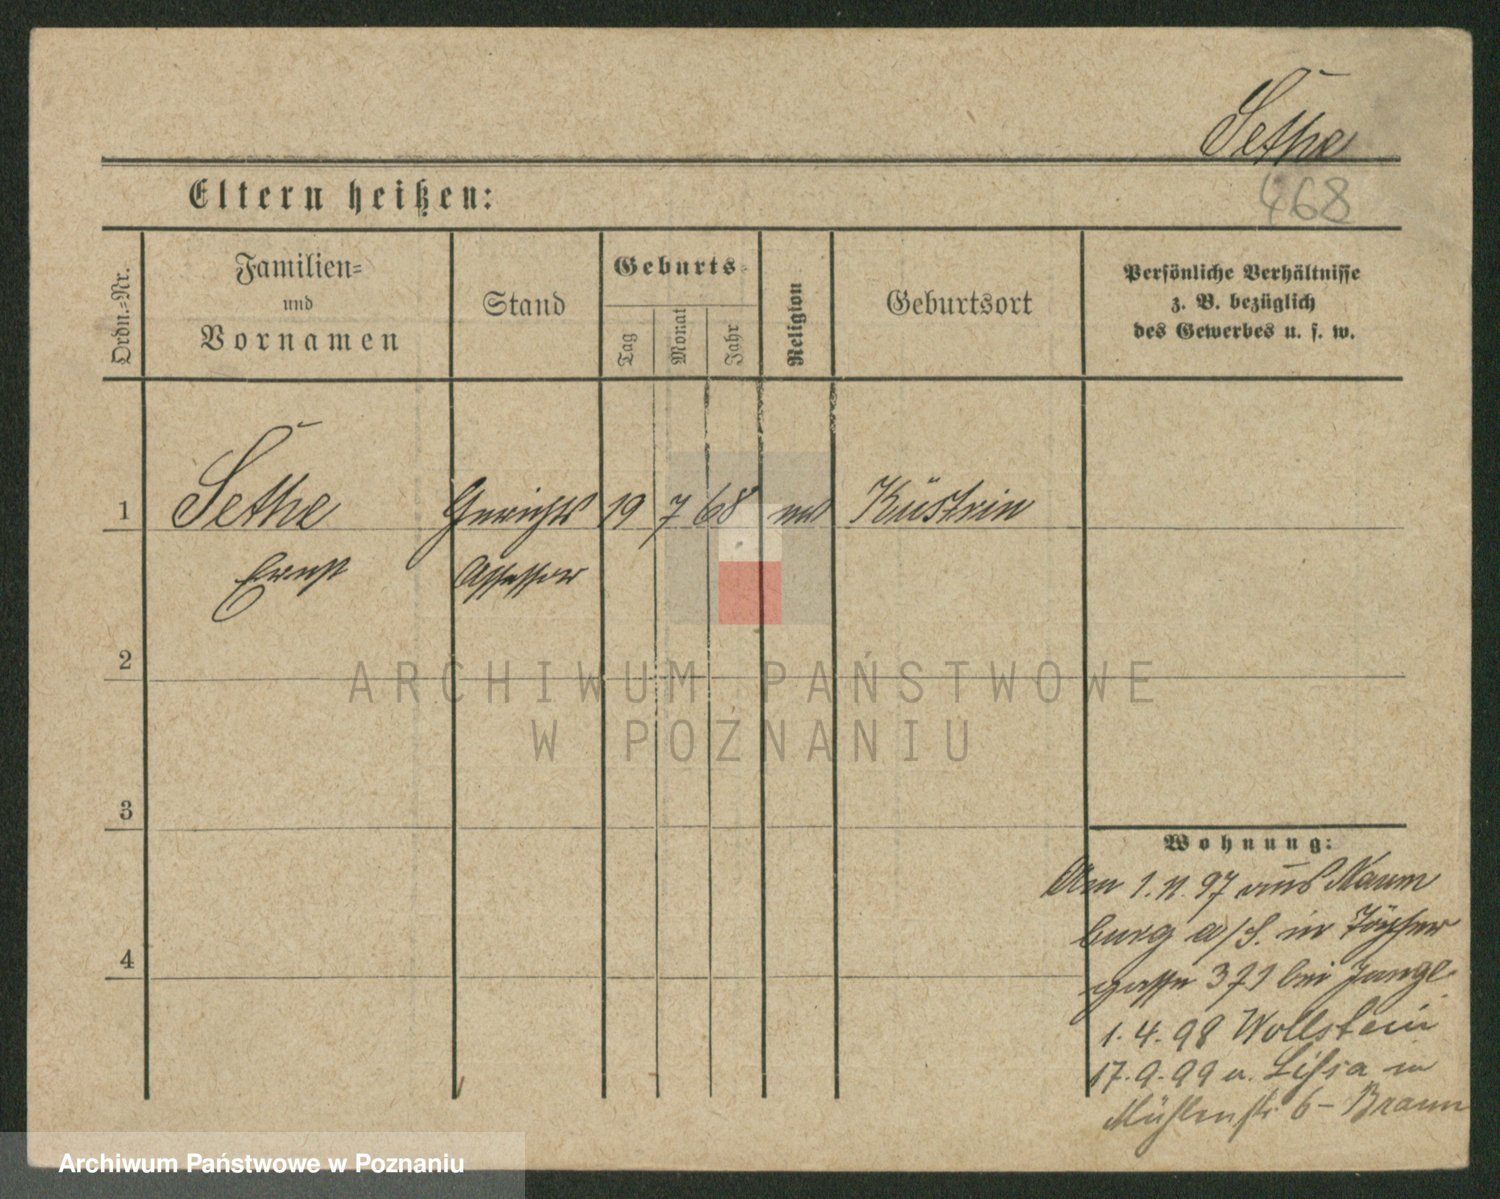 Sethe
468
Eltern heißen:
Ordn.=Nr.
Familien=
und
Vornamen
Stand
Geburts=
Tag
Monat
Jahr
Religion
Geburtsort
Persönliche Verhältnisse
z. B. bezüglich
des Gewerbes u. s. w.
1 Sethe Gerichts 19 7 68 ev Küstrin
Ernst Assessor
2
ARCHIWUM PAŃSTWOWE
W POZNANIU
3
Wohnung:
Am 1.11.97 aus Naum
burg a/S. in
gasse 371 bei
4
1.4.98 Wollstein
17.9.99 v. Lissa in
Mühlenstr 6 - Braun
Archiwum Państwowe w Poznaniu